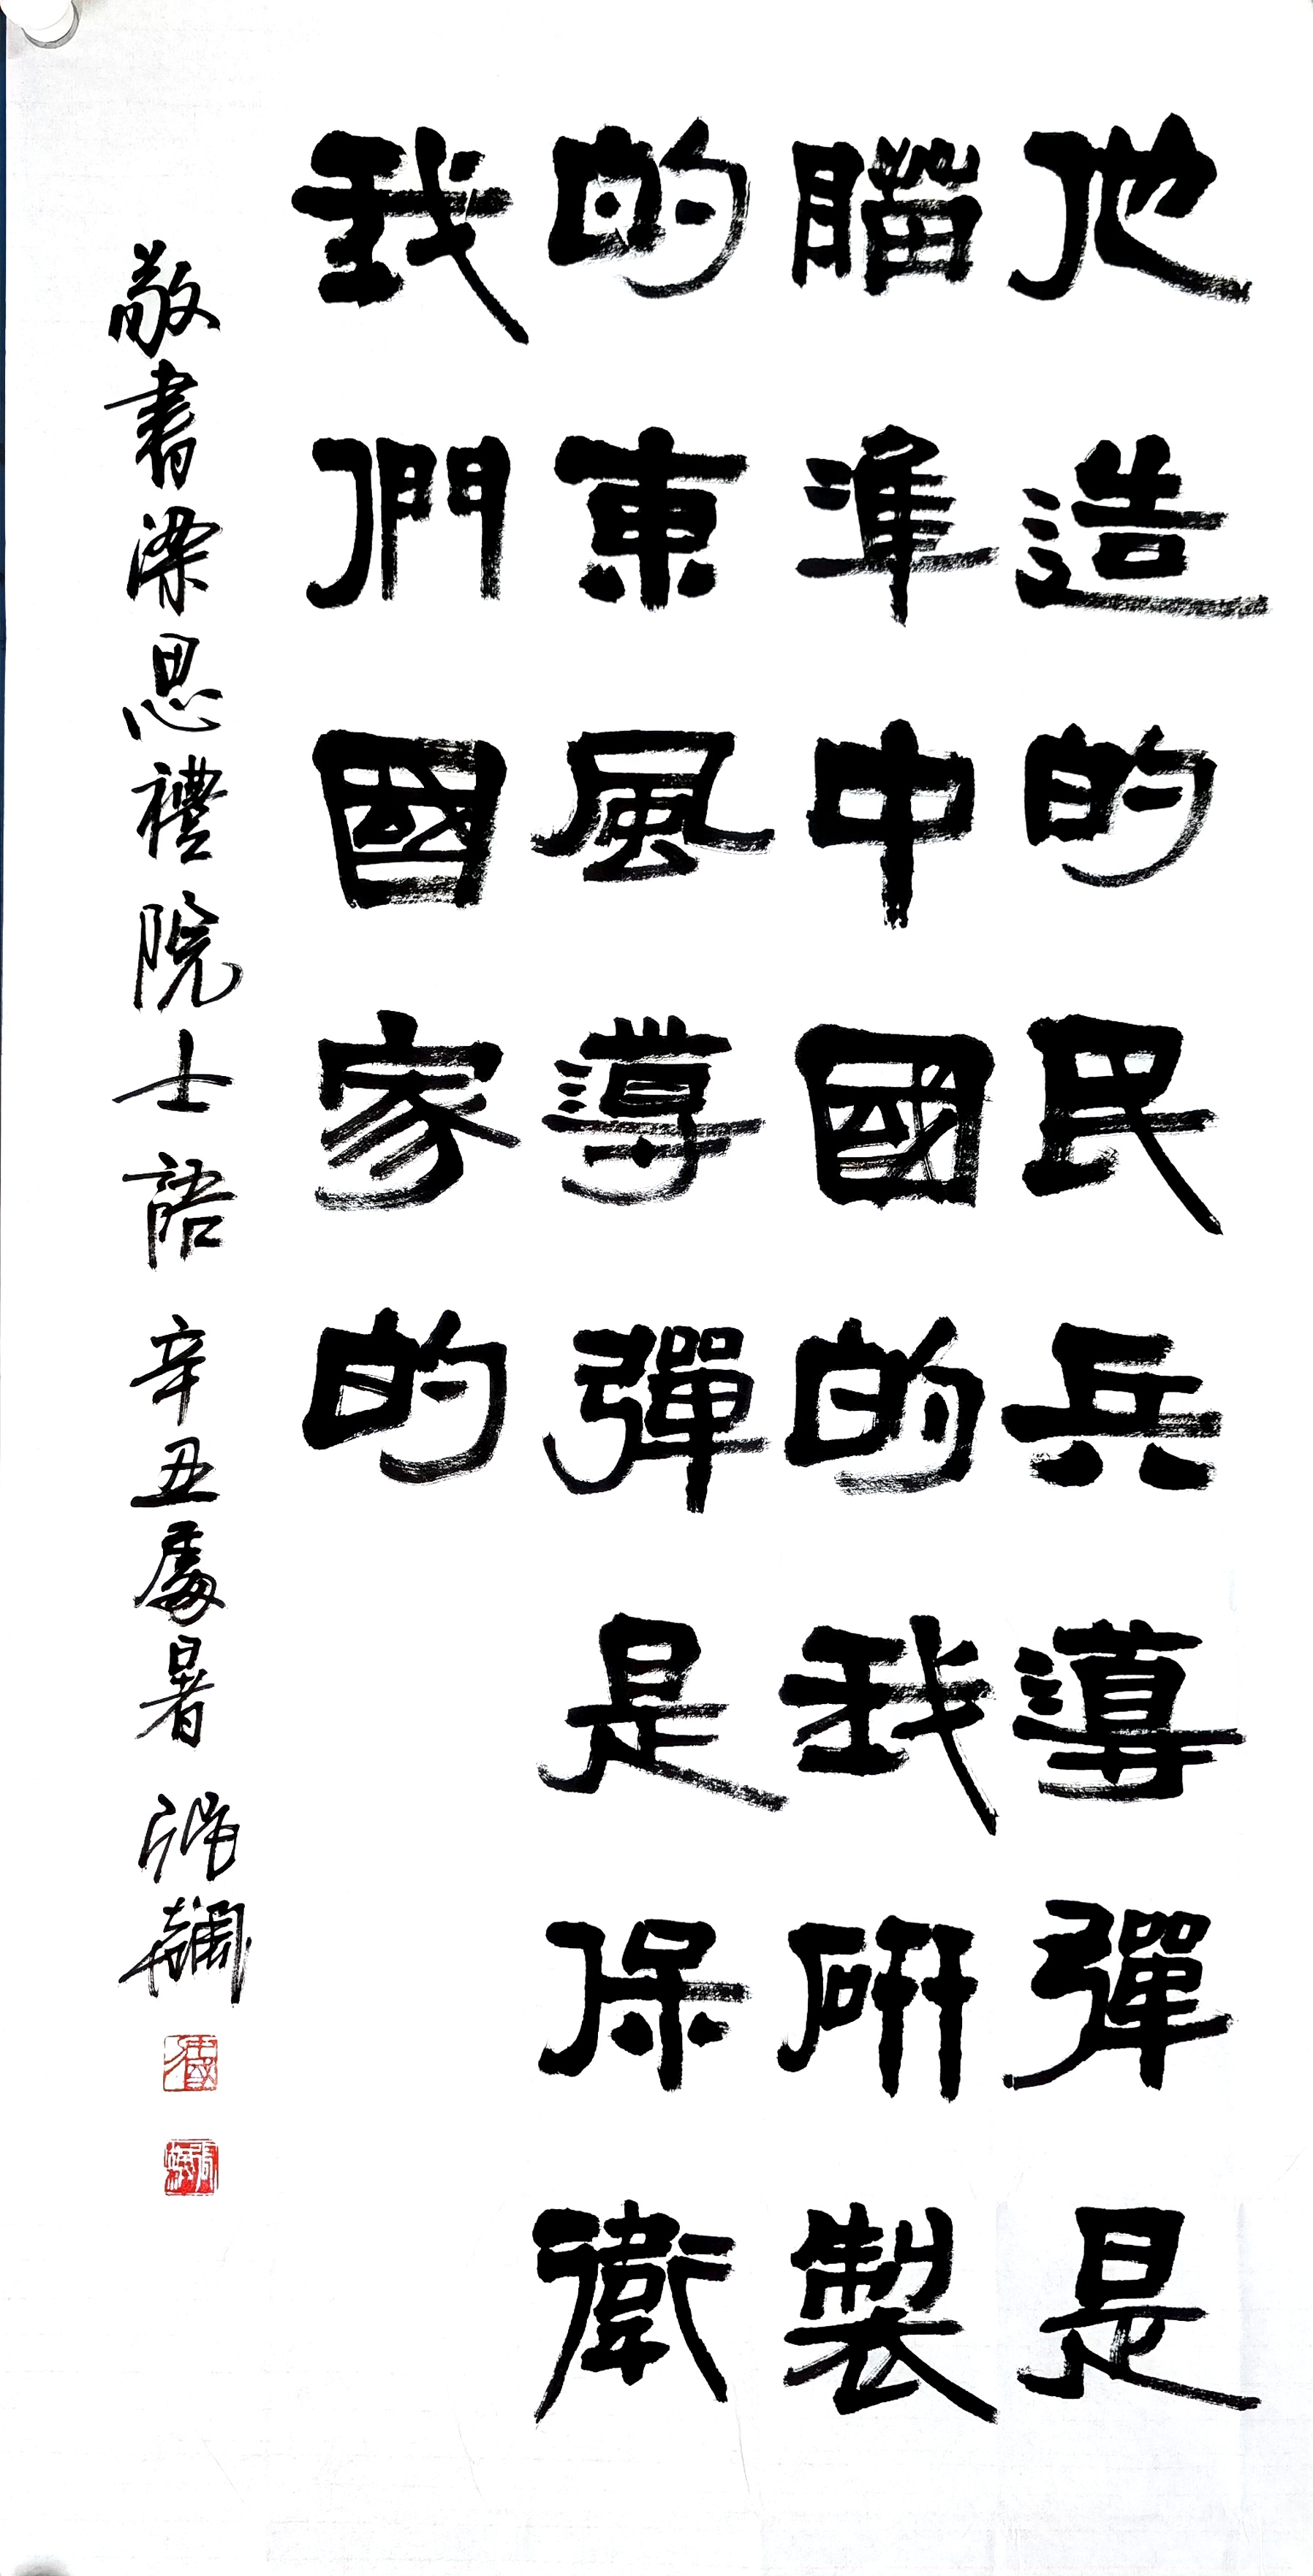 他造的民兵導彈是
瞄準中國的我研製
的東風導彈是保衛
我們國家的
敬書梁思禮院士語 辛丑處暑